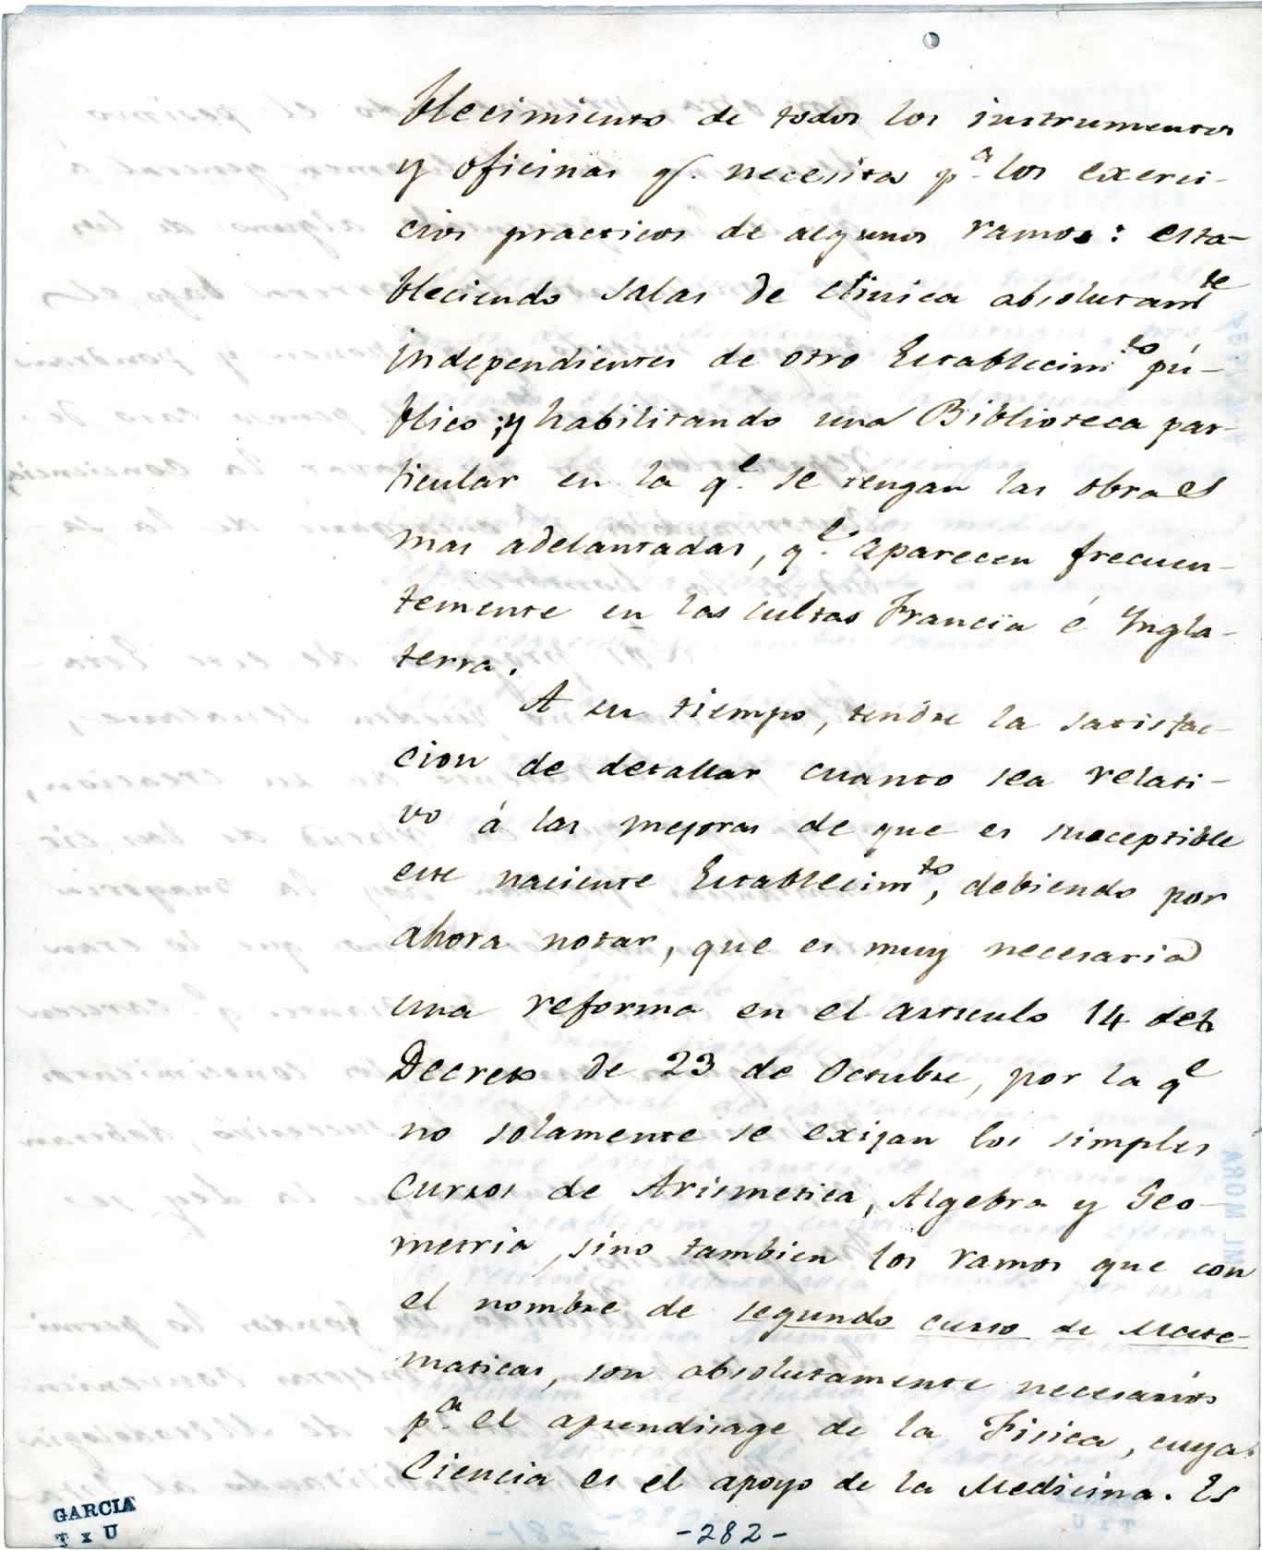 blecimiento de todos los instrumentos
y oficinas q.e necesita p.a los exerci-
cios practicos de algunos ramos: esta-
bleciendo salas de clinica absolutam.te
independientes de otro Establecim.to pú-
blico; y habilitando una Biblioteca par-
ticular en la q.e se tengan las obras
mas adelantadas, q.e aparecen frecuen-
temente en las cultas Francia é Yngla-
terra.
A su tiempo, tendre la satisfac-
cion de detallar cuanto sea relati-
vo á las mejoras de que es suceptible
este naciente Establecim.to, debiendo por
ahora notar, que es muy necesaria
una reforma en el articulo 14 del
Decreto de 23 de Octubre, por la q.e
no solamente se exijan los simples
cursos de Arismetica, Algebra y Geo-
metria, sino tambien los ramos que con
el nombre de segundo curso de Mate-
maticas, son absolutamente necesarios
p.a el aprendisage de la Fisica, cuya
Ciencia es el apoyo de la Medicina. Es
GARCIA
T x U
-282-